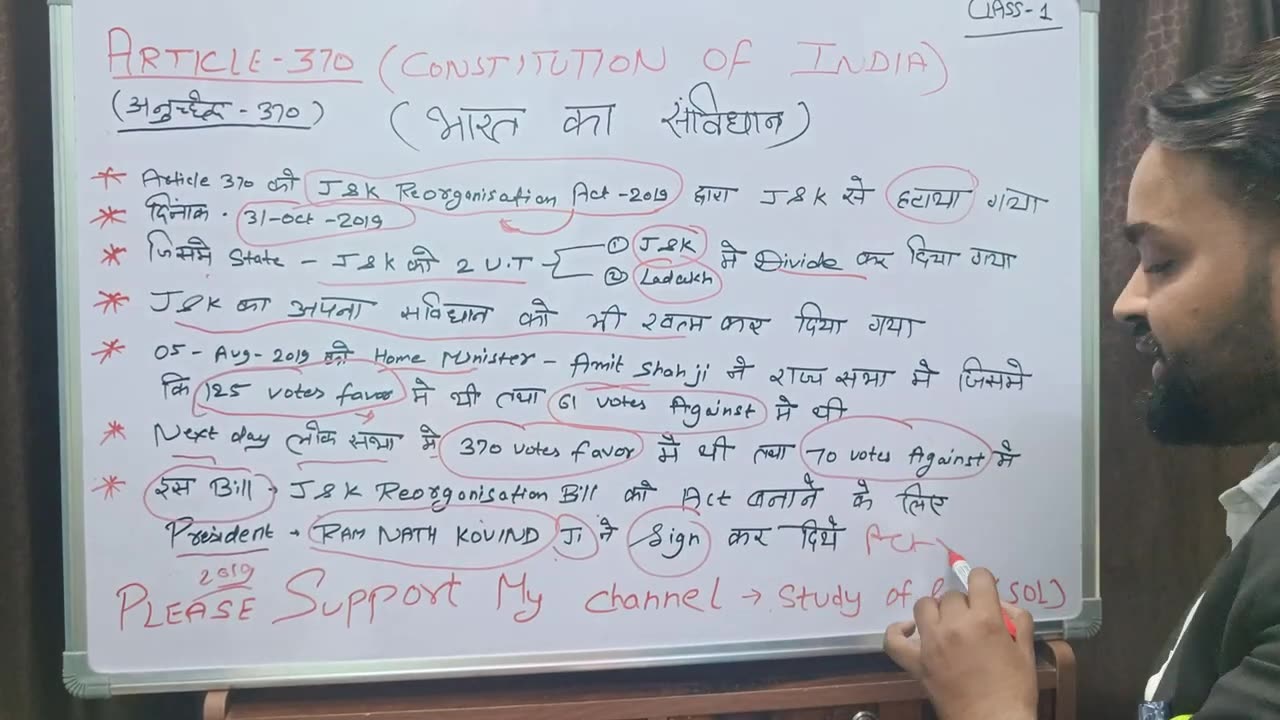 CLASS-1
ARTICLE-370 (CONSTITUTION OF INDIA)
(अनुच्छेद - 370) (भारत का संविधान)
* Article 370 को J&K Reorganisation Act-2019 द्वारा J&K से हटाया गया
* दिनांक. 31-oct-2019
* जिसमे State - J&K को 2 U.T ① J&K ② Ladakh मे Divide कर दिया गया
* J&K का अपना सविधान को भी खत्म कर दिया गया
* 05-Aug-2019 को Home Minister - Amit Shah ji ने राज्य सभा मे जिसमे
कि 125 votes favor मे थी तथा 61 votes Against मे थी
* Next day लोक सभा मे 370 votes favor मे थी तथा 70 votes Against मे
* इस Bill → J&K Reorganisation Bill को Act बनाने के लिए
President → RAM NATH KOVIND Ji ने Sign कर दिये Act
2019
PLEASE Support My channel → Study of (SOL)